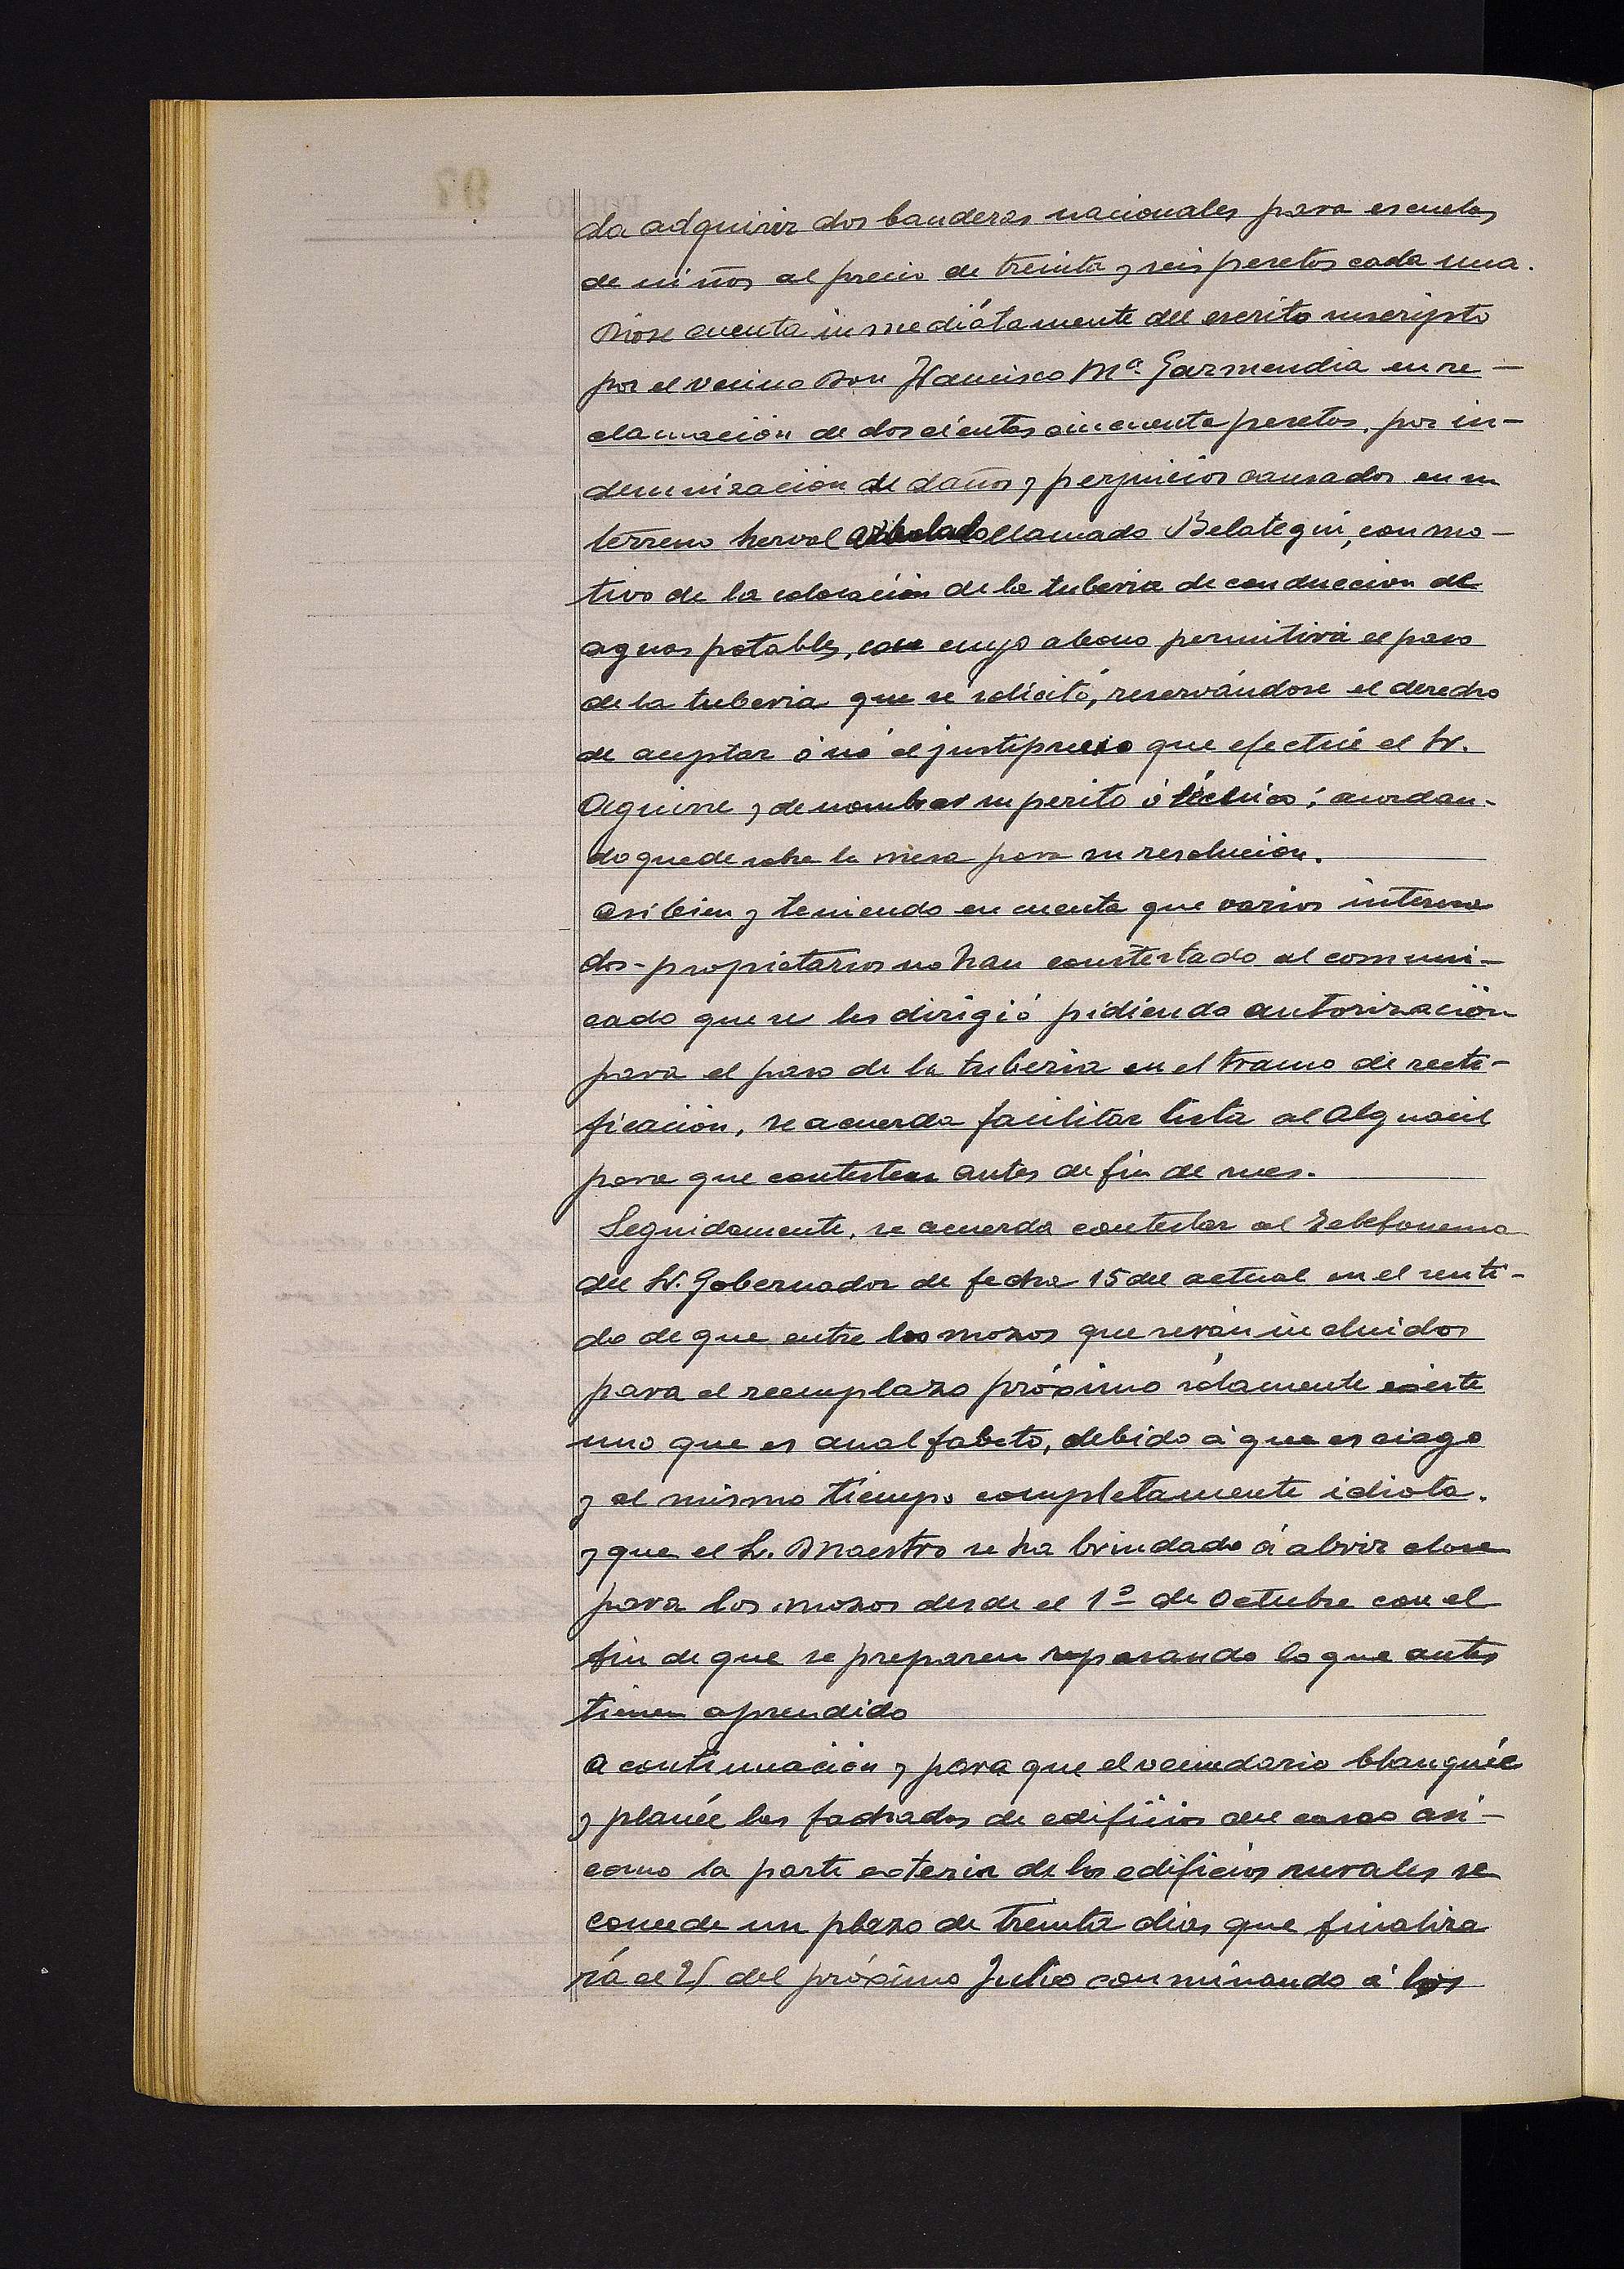 da adquirir dos banderas nacionales para escuelas
de niños al precio de treinta y seis pesetas cada una.
Diose cuenta inmediátamente del escrito suscripto
por el vecino Don Francisco Mª. Garmendia en re-
clamación de doscientas cincuenta pesetas, por in-
demnización de daños y perjuicios causados en su
terreno herval arbolado llamado Belategui, con mo-
tivo de la colocación de la tuberia de conduccion de
aguas potables, con cuyo abono permitirá el paso
de la tuberia que se solicitó, reservándose el derecho
de aceptar ó nó el justiprecio que efectúe el Sr.
Aguirre y de nombrar su perito ó técnico; acordan-
do quede sobre la mesa para su resolución.
Asi bien y teniendo en cuenta que varios interesa
dos-propietarios no han constestado al comuni-
cado que se les dirigió pidiendo autorización
para el paso de la tuberia en el tramo de recti-
ficación, se acuerda facilitar lista al Alguacil
para que contesten antes de fin de mes.
Seguidamente, se acuerda contestar al Telefonema
del Sr. Gobernador de fecha 15 del actual en el senti-
do de que entre los mozos que serán incluidos
para el reemplazo próximo sólamente existe
uno que es analfabeto, debido á que es ciego
y al mismo tiempo completamente idiota.
y que el Sr. Maestro se ha brindado á abrir clase
para los mozos desde el 1º de Octubre con el
fin de que se preparen repasando lo que antes
tienen aprendido
A continuación y para que el vecindario blanquée
y planée las fachadas de edificios del casco asi-
como la parte exterior de los edificios rurales se
concede un plazo de treinta dias que finaliza
rá el 25 del próximo Julio conminando á los